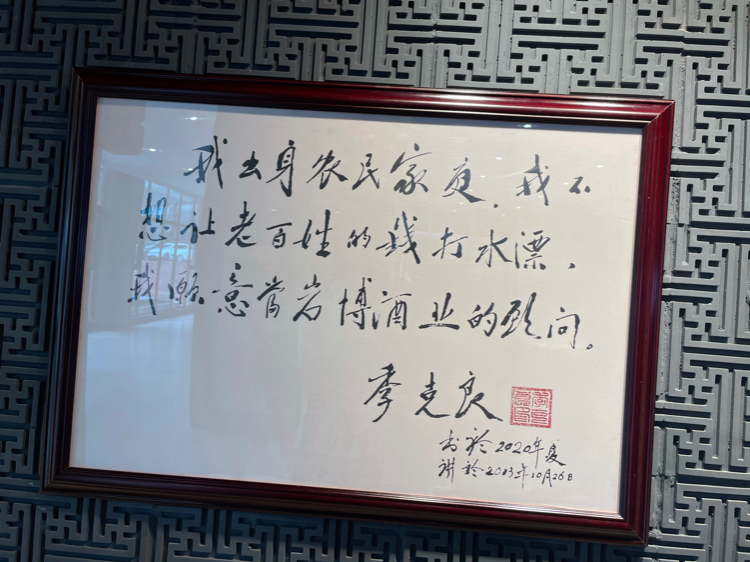 我出身农民家庭，我不
想让老百姓的钱打水漂，
我愿意当岩博酒业的顾问。
季克良
书於2020年夏
讲於2013年10月26日